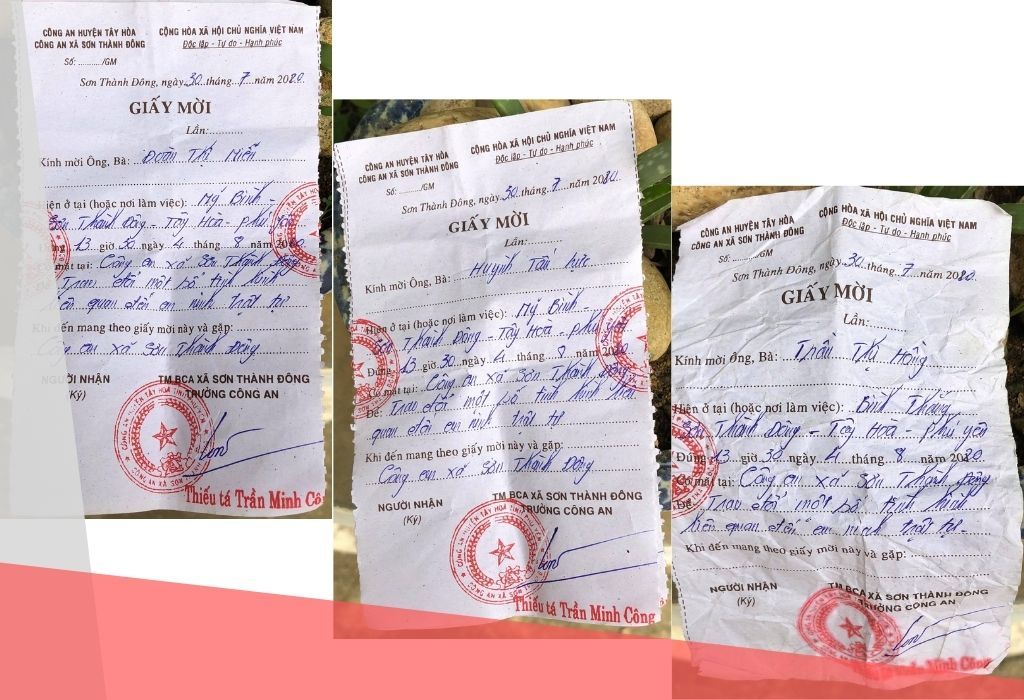 CÔNG AN HUYỆN TÂY HÒA
CÔNG AN XÃ SƠN THÀNH ĐÔNG
CỘNG HÒA XÃ HỘI CHỦ NGHĨA VIỆT NAM
Độc lập - Tự do - Hạnh phúc
Số: ........../GM
Sơn Thành Đông, ngày 30 tháng 7 năm 2020.
GIẤY MỜI
Lần:...........
Kính mời Ông, Bà: Đoàn Thị Miễn
Hiện ở tại (hoặc nơi làm việc): Mỹ Bình -
Sơn Thành Đông - Tây Hoà - Phú Yên
Đúng 13 giờ 30 ngày 4 tháng 8 năm 2020
Có mặt tại: Công an xã Sơn Thành Đông
Trao đổi một số tình hình
liên quan đến an ninh trật tự
Khi đến mang theo giấy mời này và gặp:
Công an xã Sơn Thành Đông
NGƯỜI NHẬN
(Ký)
TM.BCA XÃ SƠN THÀNH ĐÔNG
TRƯỞNG CÔNG AN
Thiếu tá Trần Minh Công
CÔNG AN HUYỆN TÂY HÒA
CÔNG AN XÃ SƠN THÀNH ĐÔNG
CỘNG HÒA XÃ HỘI CHỦ NGHĨA VIỆT NAM
Độc lập - Tự do - Hạnh phúc
Số: ........../GM
Sơn Thành Đông, ngày 30 tháng 7 năm 2020.
GIẤY MỜI
Lần:...........
Kính mời Ông, Bà: Huỳnh Tấn Lực
Hiện ở tại (hoặc nơi làm việc): Mỹ Bình -
Sơn Thành Đông - Tây Hoà - Phú Yên
Đúng 13 giờ 30 ngày 4 tháng 8 năm 2020
Có mặt tại: Công an xã Sơn Thành Đông
Để: Trao đổi một số tình hình liên
quan đến an ninh trật tự
Khi đến mang theo giấy mời này và gặp:
Công an xã Sơn Thành Đông
NGƯỜI NHẬN
(Ký)
TM.BCA XÃ SƠN THÀNH ĐÔNG
TRƯỞNG CÔNG AN
Thiếu tá Trần Minh Công
CÔNG AN HUYỆN TÂY HÒA
CÔNG AN XÃ SƠN THÀNH ĐÔNG
CỘNG HÒA XÃ HỘI CHỦ NGHĨA VIỆT NAM
Độc lập - Tự do - Hạnh phúc
Số: ........../GM
Sơn Thành Đông, ngày 30 tháng 7 năm 2020.
GIẤY MỜI
Lần:...........
Kính mời Ông, Bà: Trần Thị Hồng
Hiện ở tại (hoặc nơi làm việc): Bình Thắng
Sơn Thành Đông - Tây Hoà - Phú Yên
Đúng 13 giờ 30 ngày 4 tháng 8 năm 2020.
Có mặt tại: Công an xã Sơn Thành Đông
Để: Trao đổi một số tình hình
liên quan đến an ninh trật tự.
Khi đến mang theo giấy mời này và gặp:
NGƯỜI NHẬN
(Ký)
TM.BCA XÃ SƠN THÀNH ĐÔNG
TRƯỞNG CÔNG AN
Trần Minh Công